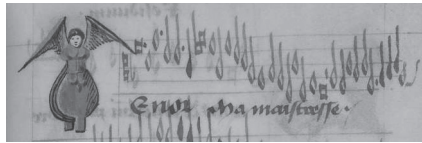 Enor Ma maistresse.